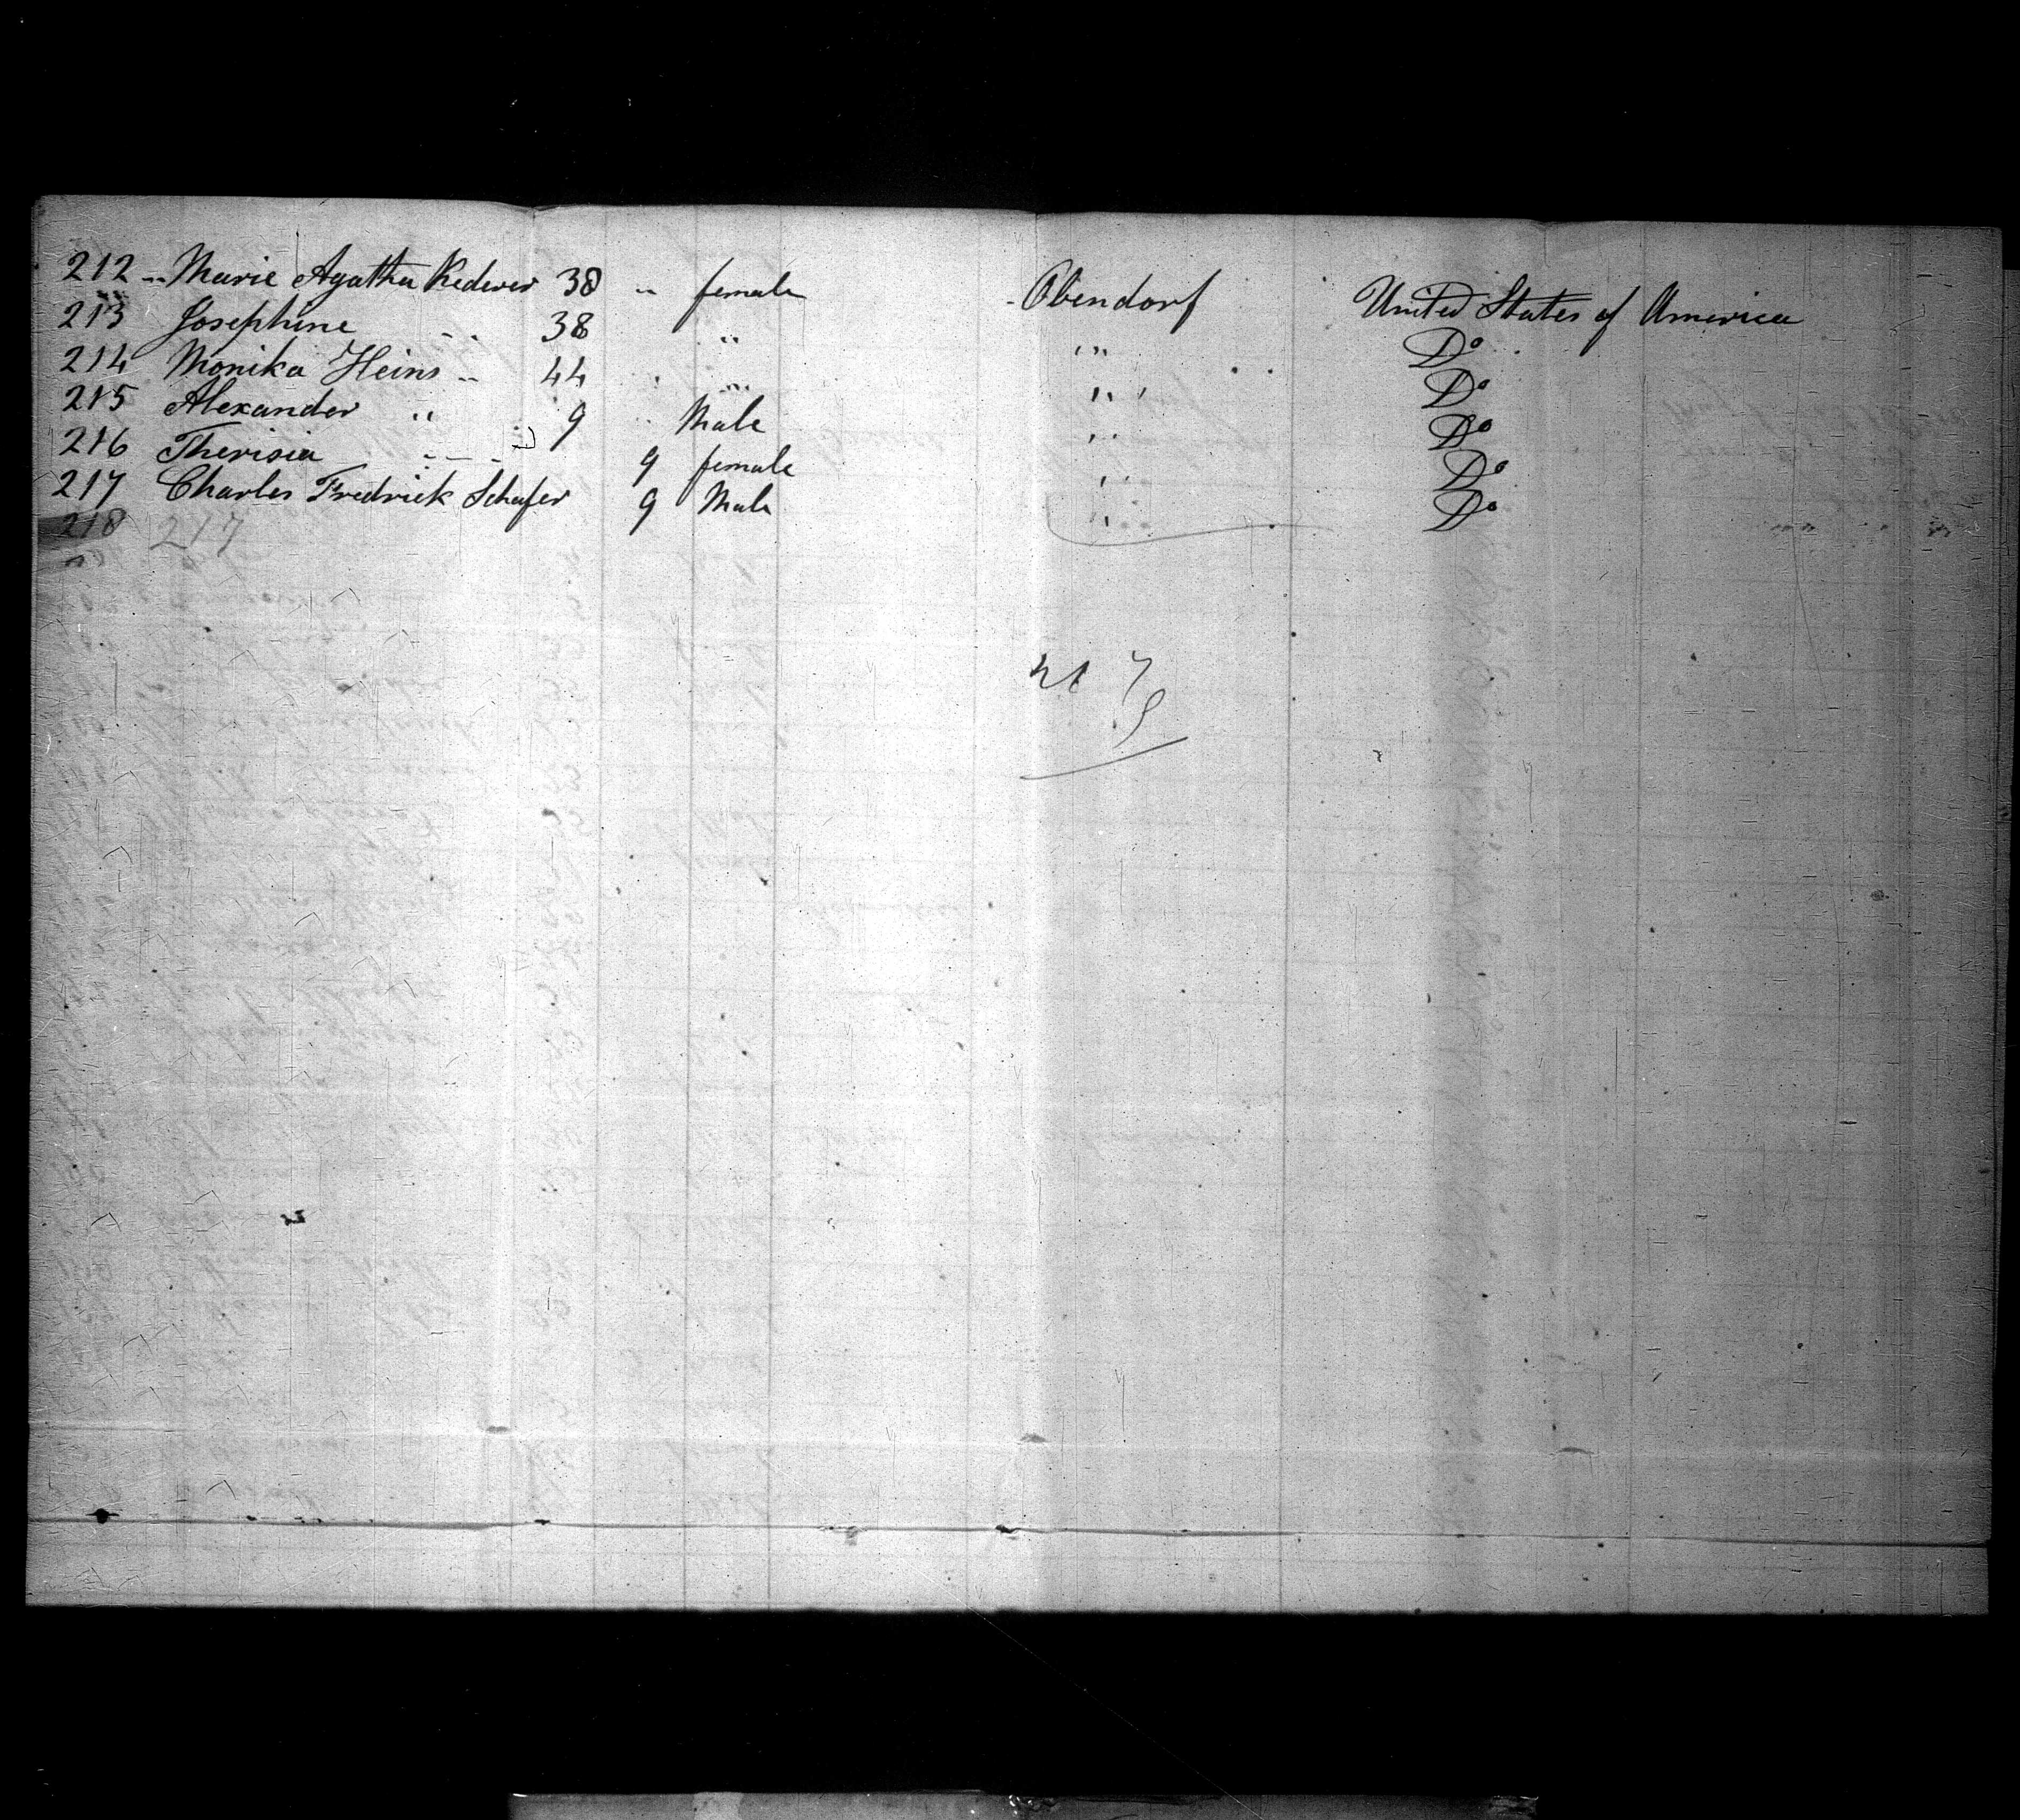 212 " Marie Agatha Rederer 38 " female Obendorf United States of America
213 Josephine " " 38 " " Do
214 Monika Heins " 44 " " Do
215 Alexander " 9 Male " Do
216 Therisia " " 9 female " Do
217 Charles Fredrick Schafer 9 Male " Do
218 217
217